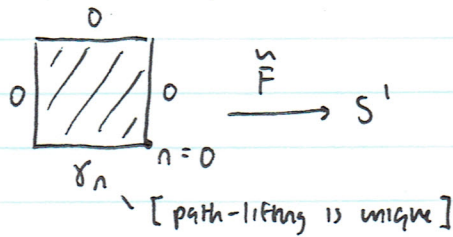 0
0 0 F̃ → S¹
n=0
γn
[path-lifting is unique]